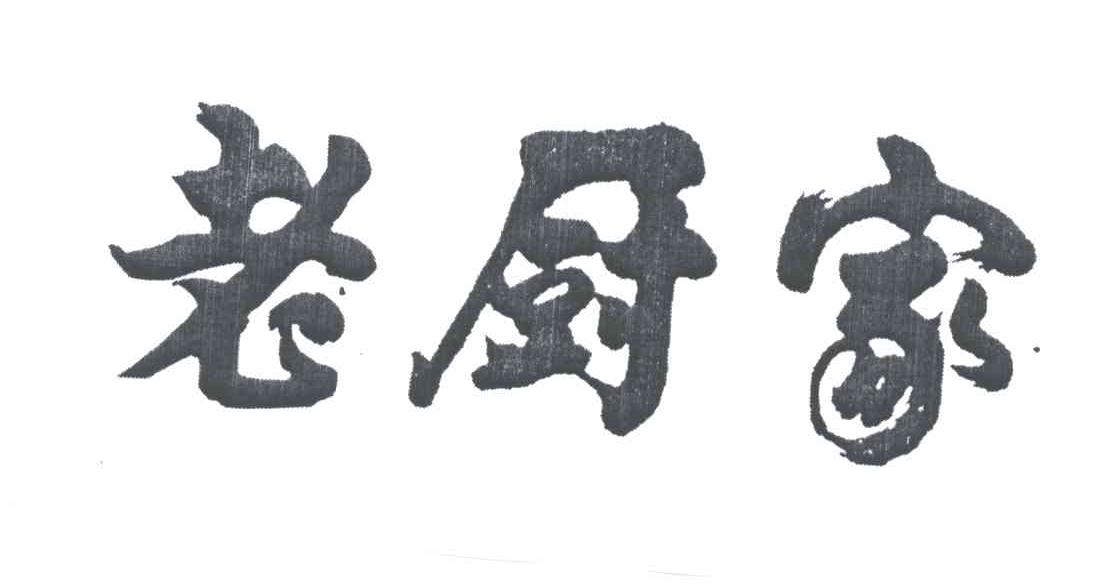 老厨家